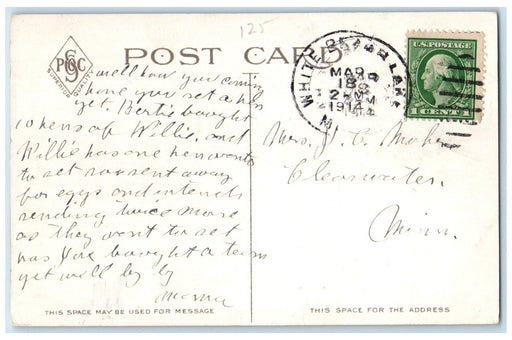 125
PCK CO
SUPERIOR QUALITY
POST CARD
U.S. POSTAGE
1 CENT 1
WHITE BEAR LAKE
MAR
18
2 PM
1914
well how you coming
have you set a hen
yet. Bertie bought
10 hens of Willie, and
Willie has one hen wants to
set so sent away
for eggs and intends
sending twice more
as they want to set
has Van bought a team
yet well by by
Mama
Mrs. J. C.
Clearwater,
Minn.
THIS SPACE MAY BE USED FOR MESSAGE
THIS SPACE IS FOR THE ADDRESS